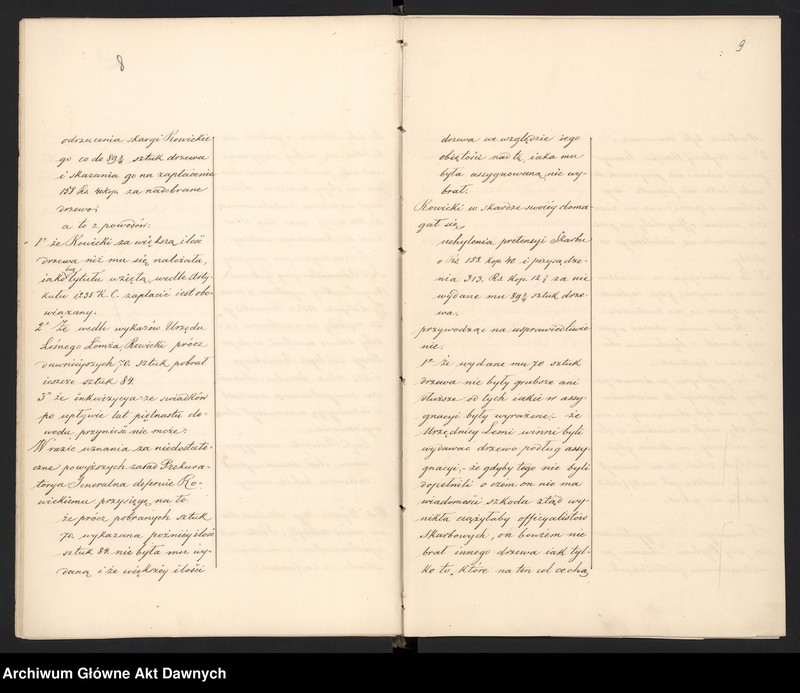 8
odrzucenia skargi Rowickie
go co do 89½ sztuk drzewa
i skazania go na zapłacenie
158 Rs 40 kop. za nadebrane
drzewo;
a to z powodów:
1° że Rowicki za większą ilość
drzewa niż mu się należała,
iako bez tytułu wziętą, wedle Arty-
kułu 1235 K. C. zapłacić iest obo-
wiązany.
2° Że wedle wykazów Urzędu
Leśnego Łomża, Rowicki prócz
dawniejszych 70. sztuk pobrał
ieszcze sztuk 84.
3° że inkwizycya ze świadków
po upływie lat piętnastu do-
wodu przynieść nie może.
W razie uznania za niedostate-
czne powyższych zasad Prokura-
torya Jeneralna deferuie Ro-
wickiemu przysięgę na to:
że prócz pobranych sztuk
70. wykazana późniéy ilość
sztuk 84. nie była mu wy-
daną i że większéy ilości
9
drzewa we względzie iego
obiętości nad tę, iaka mu
była assygnowaną, nie wy-
brał.
Rowicki w skardze swoiéy doma-
gał się
uchylenia pretensyi Skarbu
o Rs. 158 kop. 40. i przysądze-
nia 313. Rs kop. 12½ za nie
wydane mu 89½ sztuk drze-
wa.
przywodząc na usprawiedliwie
nie.
1° że wydane mu 70 sztuk
drzewa nie były grubsze ani
dłuższe od tych iakie w assy-
gnacyi były wyrażone; że
Urzędnicy Leśni winni byli
wydawać drzewo podług assy-
gnacyi; że gdyby tego nie byli
dopełnili o czem on nie ma
wiadomości szkoda ztąd wy-
nikła ciążyłaby officyalistów
Skarbowych, on bowiem nie
brał innego drzewa iak tyl-
ko to, które na ten cel cechą
Archiwum Główne Akt Dawnych